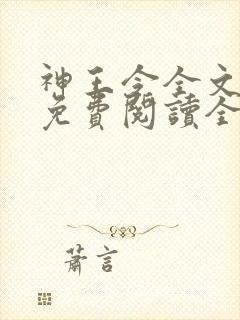 神王令全文
免費閱讀全
蕭言